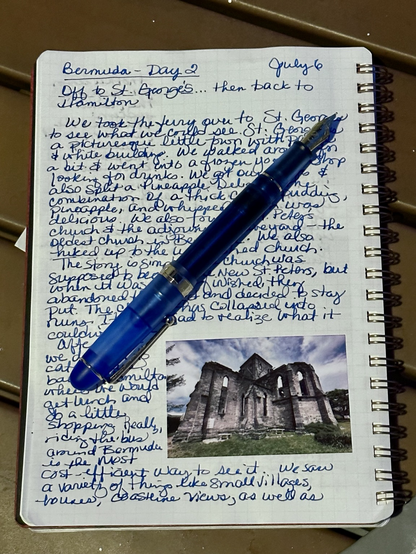 Bermuda - Day 2 July 6
Off to St. George's... then back to
Hamilton
We took the ferry over to St. George
to see what we could see. St. Geor
a picturesque little town with
& white building. We walked aro
a bit & went into a frozen yo shop
looking for drinks. We got ou &
also split a Pineapple Deli
combination of a thick pudding,
Pineapple, and whipped was
delicious. We also fou Peters
church & the adjoin yard - the
oldest church in Be We also
hiked up to the shed church.
The story is since church was
supposed to be New St. Peters, but
when it wa nished, they
abandoned and decided to stay
put. The has collapsed into
ruins. I ad to realize what it
could
we
cat
ba milton
where we would
get lunch and
do a little
shopping. Really,
riding the bus
around Bermuda
is the most
cost-efficient way to see it. We saw
a variety of things like small villages,
houses, coastline views, as well as